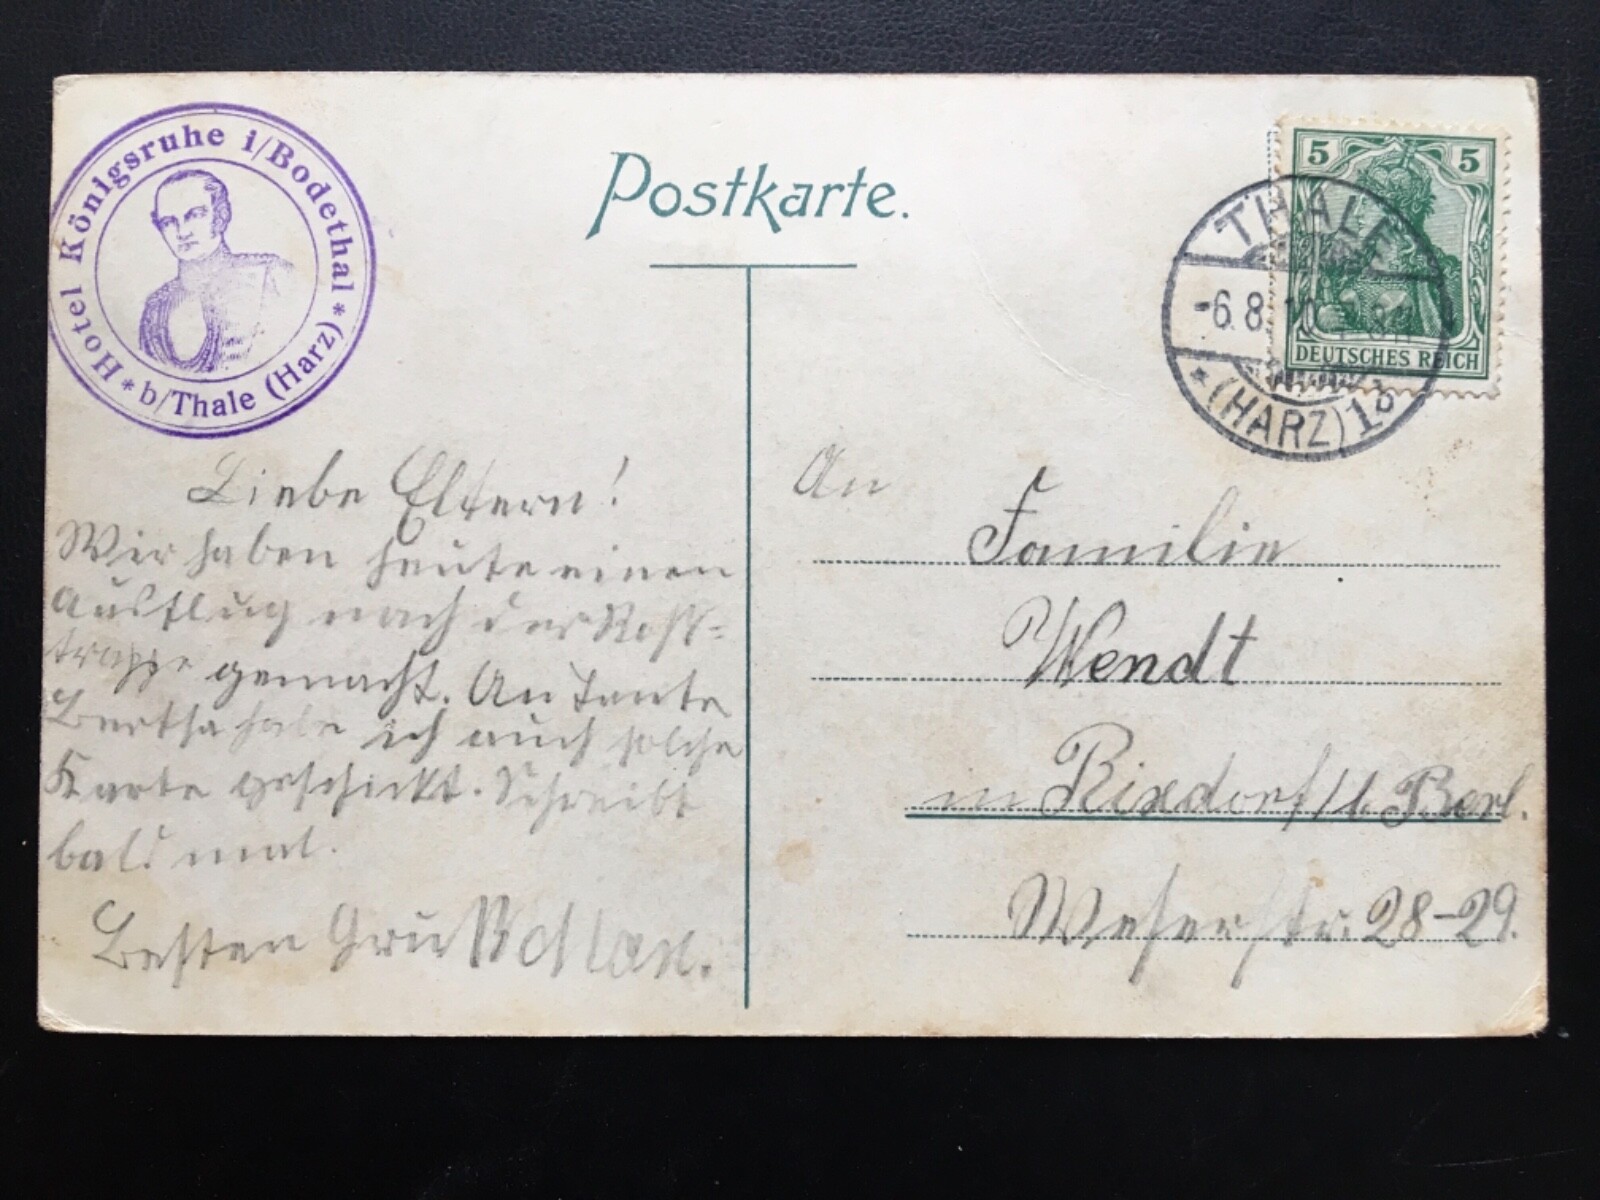 Hotel Königsruhe i/Bodethal
* b/Thale (Harz) *
Postkarte.
5 5
DEUTSCHES REICH
THALE
-6.8.10
* (HARZ) 1b
Liebe Eltern!
Wir haben heute einen
Ausflug nach der Roß-
trappe gemacht. An Tante
Bertha habe ich auch solche
Karte geschickt. Schreibt
bald mal.
Besten Gruß
An
Familie
Wendt
in Rixdorf/b. Berl.
Weserstr. 28-29.